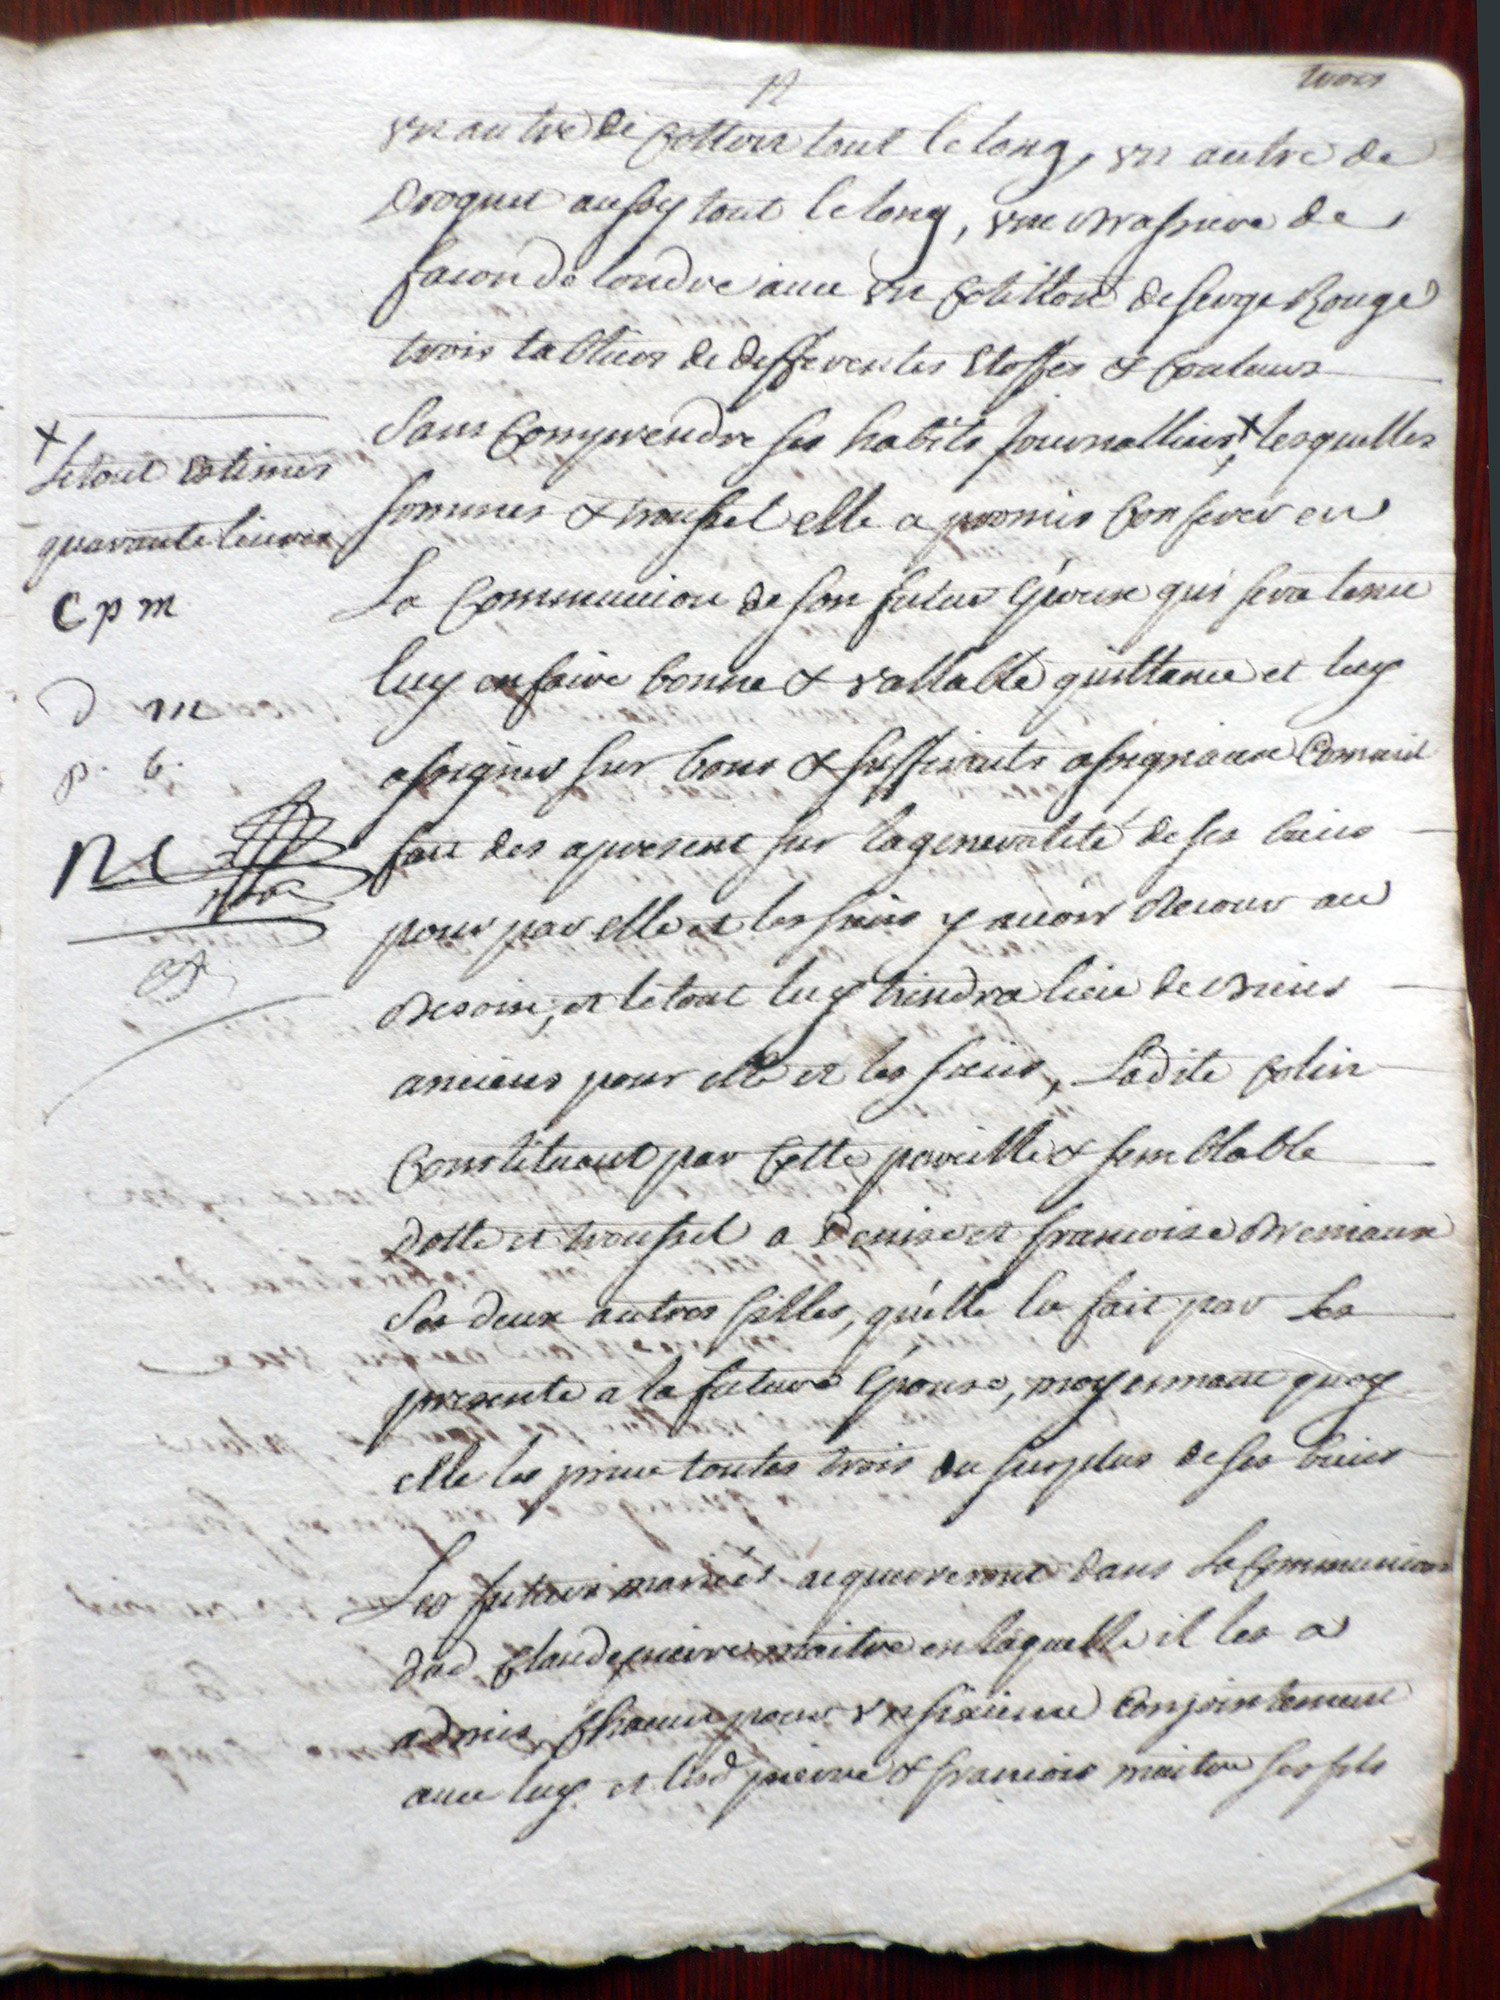 trois
un autre de Cotton tout le long, un autre de
Droguet aussy tout le long, une Brassiere de
facon de Londre avec un Cotillon de serge Rouge
trois tabliers de differentes Etoffes & Couleurs
sans Comprendre ses habits journalliers + lesquelles
sommes & troussel elle a promis Conferer en
La Communion de son futur Epoux qui sera tenu
luy en faire bonne & vallable quittance et luy
assigner sur bons & suffisants assignaux Comme il
fait des apresent sur la generalité de ses biens
pour par elle et les siens y avoir Recour au
Besoin, et le tout luy tiendra lieu de Biens
anciens pour elle et les siens, Ladite Colin
Constituant par Cette pareille & semblable
Dotte et troussel a Denise et francoise Breniaux
ses deux autres filles, qu'elle la fait par Les
presente a la future Epouse, moyennant quoy
elle les prive toutes trois du surplus de ses biens
Les futurs mariés acquereront dans La Communion
dud Claude pierre maitre en laquelle il les a
admis Chacun pour un sixieme Conjointement
avec luy et lesd pierre & francois maitre ses fils
+ Le tout Estimer
quarante livres
C p m
D m
p. b.